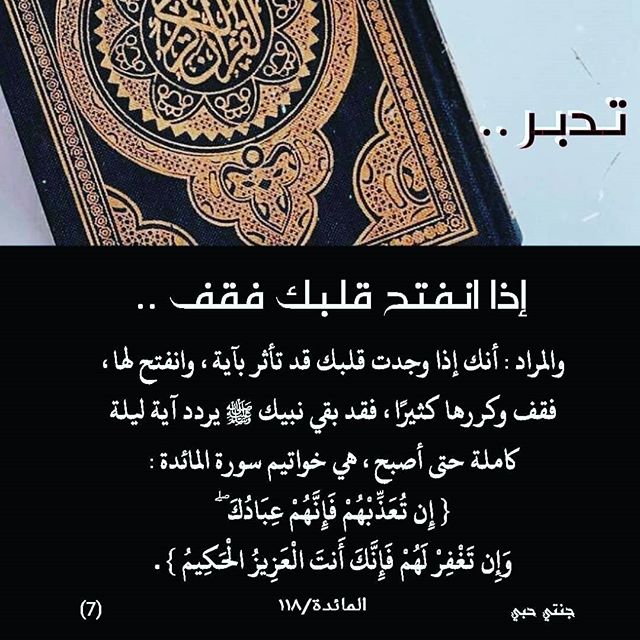 القرآن الكريم
تدبر ..
إذا انفتح قلبك فقف ..
والمراد : أنك إذا وجدت قلبك قد تأثر بآية ، وانفتح لها ،
فقف وكررها كثيرًا ، فقد بقي نبيك ﷺ يردد آية ليلة
كاملة حتى أصبح ، هي خواتيم سورة المائدة :
{ إِن تُعَذِّبْهُمْ فَإِنَّهُمْ عِبَادُكَ ۖ
وَإِن تَغْفِرْ لَهُمْ فَإِنَّكَ أَنتَ الْعَزِيزُ الْحَكِيمُ } .
جنتي حبي المائدة/١١٨ (7)